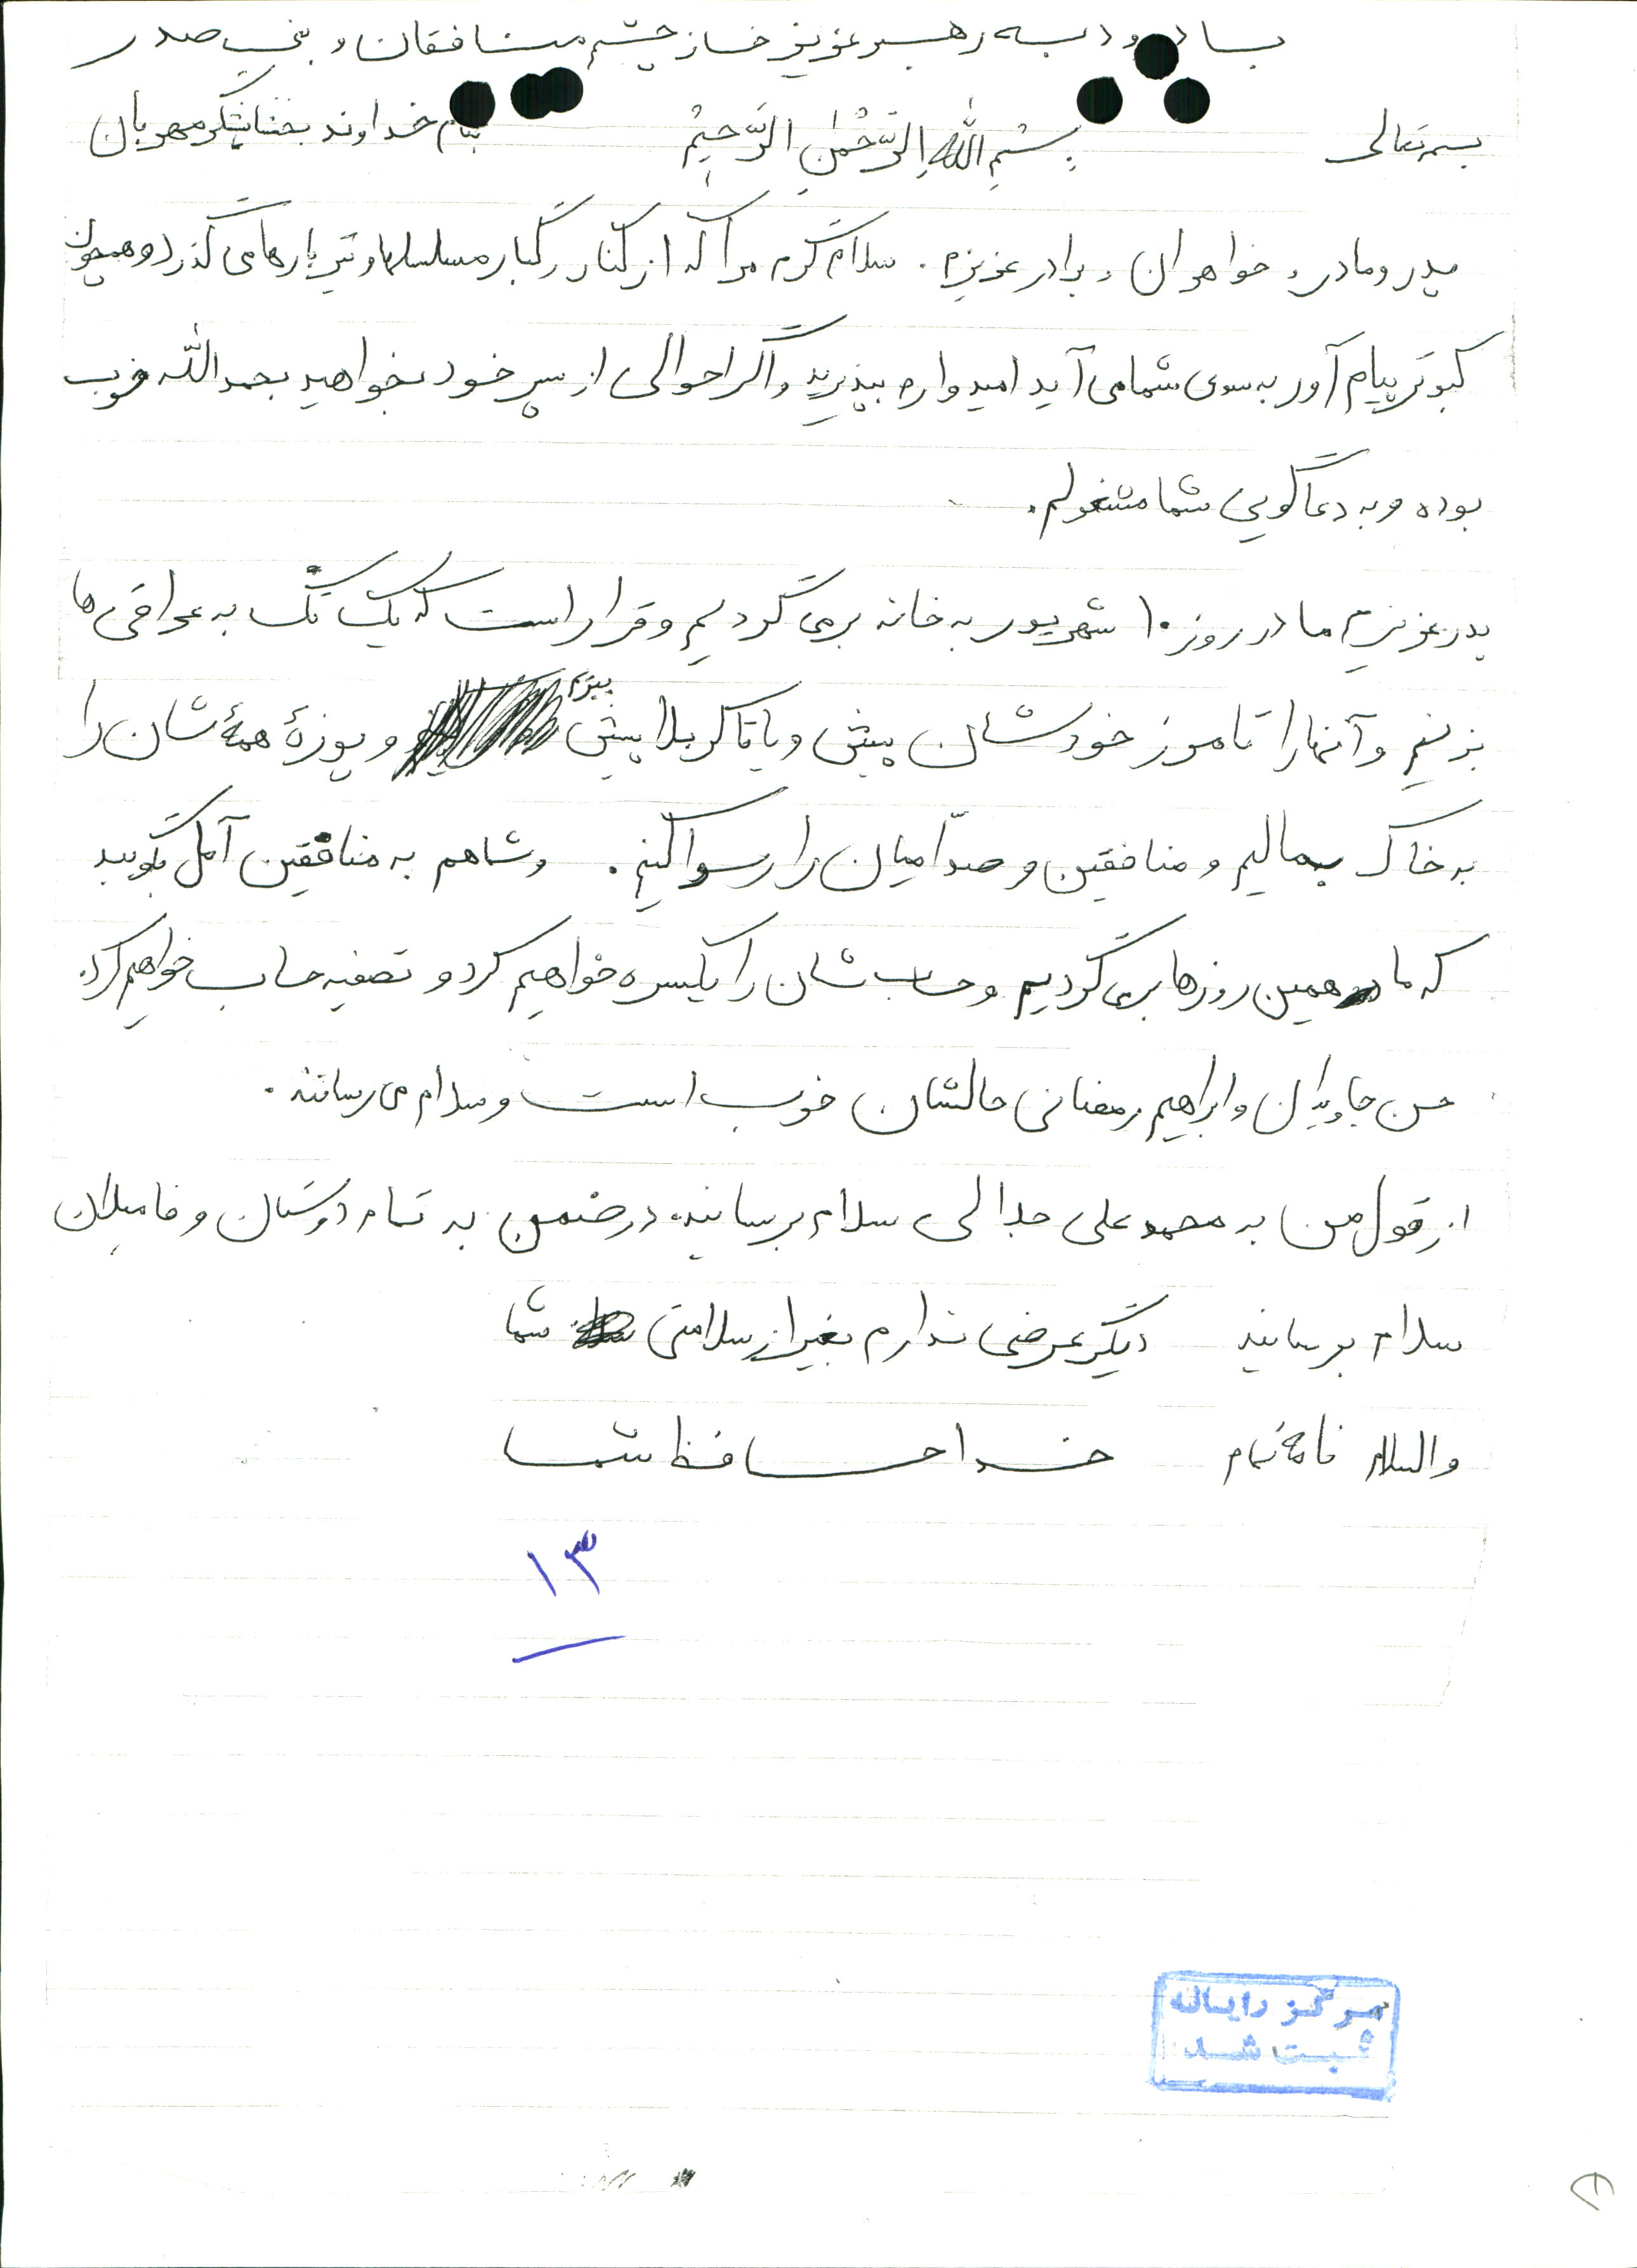 با درود به رهبر عزیز خار چشم منافقان و بنی صدر
بسمه تعالی بِسْمِ اللّٰهِ الرَّحْمٰنِ الرَّحیٖمْ بنام خداوند بخشایشگر مهربان
پدر و مادر و خواهران و برادر عزیزم . سلام گرم مرا که از کنار رگبار مسلسلها و تیربارها می گذرد و همچون
کبوتر پیام آور به سوی شما می آید امیدوارم بپذیرید و اگر احوالی از پسر خود بخواهید بحمد اللّه خوب
بوده و به دعاگویی شما مشغولم .
پدر عزیزم ما در روز ۱۰ شهریور به خانه برمی گردیم و قرار است که یک تک به عراقی ها
بزنیم و آنها را تا موز خودشان پیش و یا تا کربلا پیش ببریم و پوزهٔ همهٔ شان را
به خاک بمالیم و منافقین و صدّامیان را رسوا کنیم . و شما هم به منافقین آمل بگویید
که ما همین روزها برمی گردیم و حساب شان را یکسره خواهیم کرد و تصفیه حساب خواهیم کرد.
حسن جاویدان و ابراهیم رمضانی حالشان خوب است و سلام می رسانند .
از قول من به محمد علی جدالی سلام برسانید. در ضمن به تمام دوستان و فامیلان
سلام برسانید دیگر عرضی ندارم بغیر از سلامتی شما
والسلام نامه تمام خدا حافظ شما
۱۳
مرکز رایانه
ثبت شد